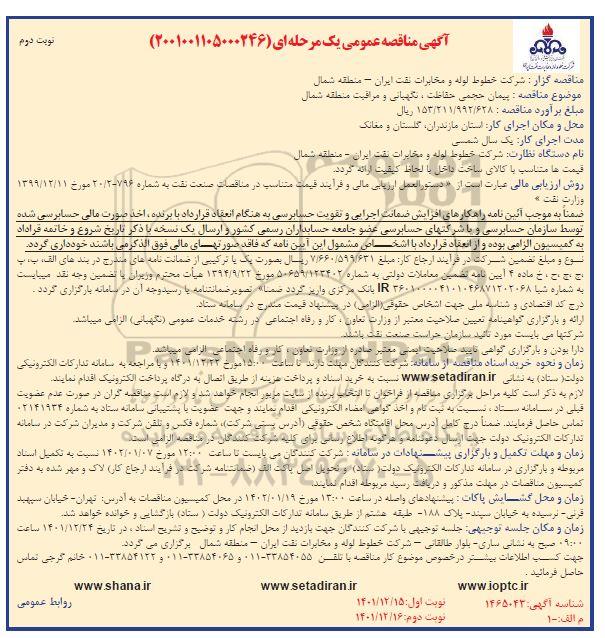 آگهی مناقصه عمومی یک مرحله ای (۲۰۰۱۰۰۱۱۰۵۰۰۰۲۴۶)
نوبت دوم
مناقصه گزار : شرکت خطوط لوله و مخابرات نفت ایران – منطقه شمال
موضوع مناقصه : پیمان حجمی حفاظت ، نگهبانی و مراقبت منطقه شمال
مبلغ برآورد مناقصه : ۱۵۳/۲۱۱/۹۹۲/۶۲۸ ریال
محل و مکان اجرای کار: استان مازندران، گلستان و مغانک
مدت اجرای کار: یک سال شمسی
نام دستگاه نظارت: شرکت خطوط لوله و مخابرات نفت ایران - منطقه شمال
قیمت ها متناسب با کالای ساخت داخل با لحاظ کیفیت ارائه گردد.
روش ارزیابی مالی عبارت است از « دستورالعمل ارزیابی مالی و فرآیند قیمت متناسب در مناقصات صنعت نفت به شماره ۷۹۶-۲۰/۲ مورخ ۱۳۹۹/۱۲/۱۱
وزارت نفت »
ضمناً به موجب آئین نامه راهکارهای افزایش ضمانت اجرایی و تقویت حسابرسی به هنگام انعقاد قرارداد با برنده ، اخذ صورت مالی حسابرسی شده
توسط سازمان حسابرسی و یا شرکتهای حسابرسی عضو جامعه حسابداران رسمی کشور و ارسال یک نسخه با ذکر تاریخ شروع و خاتمه قراداد
به کمیسیون الزامی بوده و از انعقاد قرارداد با اشخـاص مشمول این آیین نامه که فاقد صورتهـای مالی فوق الذکر می باشند خودداری گردد.
نوع و مبلغ تضمین شرکت در فرآیند ارجاع کار: مبلغ ۷/۶۶۰/۵۹۹/۶۳۱ ریال بصورت یک یا ترکیبی از ضمانت نامه های مندرج در بند های الف، ب، پ
،ج،ح، خ ماده ۴ آیین نامه تضمین معاملات دولتی به شماره ۵۰۶۵۹/ت۱۲۳۴۰۲ مورخ ۱۳۹۴/۹/۲۲ هیأت محترم وزیران یا تضمین وجه نقد میبایست
به شماره شبا IR ۳۶۰۱۰۰۰۰۴۱۰۱۰۴۶۸۷۱۲۰۲۰۶۸ بانک مرکزی واریز گردد ضمنا« تصویرضمانتنامه یا رسیدوجه آن در سامانه بارگزاری گردد .
درج کد اقتصادی و شناسه ملی جهت اشخاص حقوقی(الزامی) در پیشنهاد قیمت مندرج در سامانه ستاد.
ارائه و بارگزاری گواهینامه تعیین صلاحیت معتبر از وزارت تعاون ، کار و رفاه اجتماعی در رشته خدمات عمومی (نگهبانی) الزامی میباشد.
شرکتها می بایست مورد تائید سازمان حراست صنعت نفت باشند.
دارا بودن و بارگزاری گواهی تایید صلاحیت ایمنی معتبر صادره از وزارت تعاون ، کار و رفاه اجتماعی الزامی میباشد.
زمان و نحوه خرید اسناد مناقصه از سامانه: شرکت کنندگان مهلت دارند تا ساعت ۱۵:۰۰ مورخ ۱۴۰۱/۱۲/۲۲ و با مراجعه به سامانه تدارکات الکترونیکی
دولت( ستاد) به نشانی www.setadiran.ir نسبت به خرید اسناد و پرداخت هزینه از طریق اتصال به درگاه پرداخت الکترونیک اقدام نمایند.
لازم به ذکر است کلیه مراحل برگزاری مناقصه از فراخوان تا انتخاب برنده از سایت مزبور انجام خواهد شد و لازم است مناقصه گران در صورت عدم عضویت
قبلی در سـامانه ستاد ، نسبـت به ثبت نام و اخذ گواهی امضاء الکترونیکی اقدام نمایند و جهت عضویت با پشتیبانی سامانه ستاد به شماره ۰۲۱۴۱۹۳۴
تماس حاصل فرمایند. ضمناً درج کامل آدرس محل اقامتگاه شخص حقوقی (آدرس پستی شرکت)، شماره فکس و تلفن شرکت و مدیران شرکت در سامانه
تدارکات الکترونیک دولت جهت ارسال دعوتنامه و هرگونه اطلاع رسانی برای کلیه شرکت کنندگان در مناقصه الزامی است.
زمان و مهلت تکمیل و بارگزاری پیشنـهادات در سامانه : شرکت کنندگان می بایست تا ساعت ۱۲:۰۰ مورخ ۱۴۰۲/۰۱/۰۷ نسبت به تکمیل اسناد
مربوطه و بارگزاری در سامانه تدارکات الکترونیک دولت( ستاد) و تحویل اصل پاکت الف (ضمانتنامه شرکت در فرآیند ارجاع کار) لاک و مهر شده به دفتر
کمیسیون مناقصات در مهلت مذکور و دریافت رسید مربوطه اقدام نمایند.
زمان و محل گشـایش پاکات : پیشنهادهای واصله در ساعت ۱۳:۰۰ مورخ ۱۴۰۲/۰۱/۱۹ در محل کمیسیون مناقصات به آدرس: تهران- خیابان سپهبد
قرنی- نرسیده به خیابان سپند- پلاک ۱۸۸- طبقه هشتم از طریق سامانه تدارکات الکترونیک دولت ( ستاد) بازگشایی و خوانده خواهد شد.
زمان و مکان جلسه توجیهی: جلسه توجیهی با شرکت کنندگان جهت بازدید از محل انجام کار و توضیح و تشریح اسناد ، در تاریخ ۱۴۰۱/۱۲/۲۴ ساعت
۰۹:۰۰ صبح به نشانی ساری- بلوار طالقانی – شرکت خطوط لوله و مخابرات نفت ایران – منطقه شمال برگزاری می گردد.
جهت کسب اطلاعات بیشتر درخصوص موضوع کار مناقصه با تلفـن ۳۳۸۵۴۰۵۵-۰۱۱ و ۳۳۸۵۴۰۶۵-۰۱۱ و ۳۳۸۵۴۱۲۲-۰۱۱ خانم گرجی تماس
حاصل فرمائید .
www.shana.ir www.setadiran.ir www.ioptc.ir
شناسه آگهی: ۱۴۶۵۰۴۳ نوبت اول: ۱۴۰۱/۱۲/۱۵ روابط عمومی
م الف: ۱۰ نوبت دوم: ۱۴۰۱/۱۲/۱۶